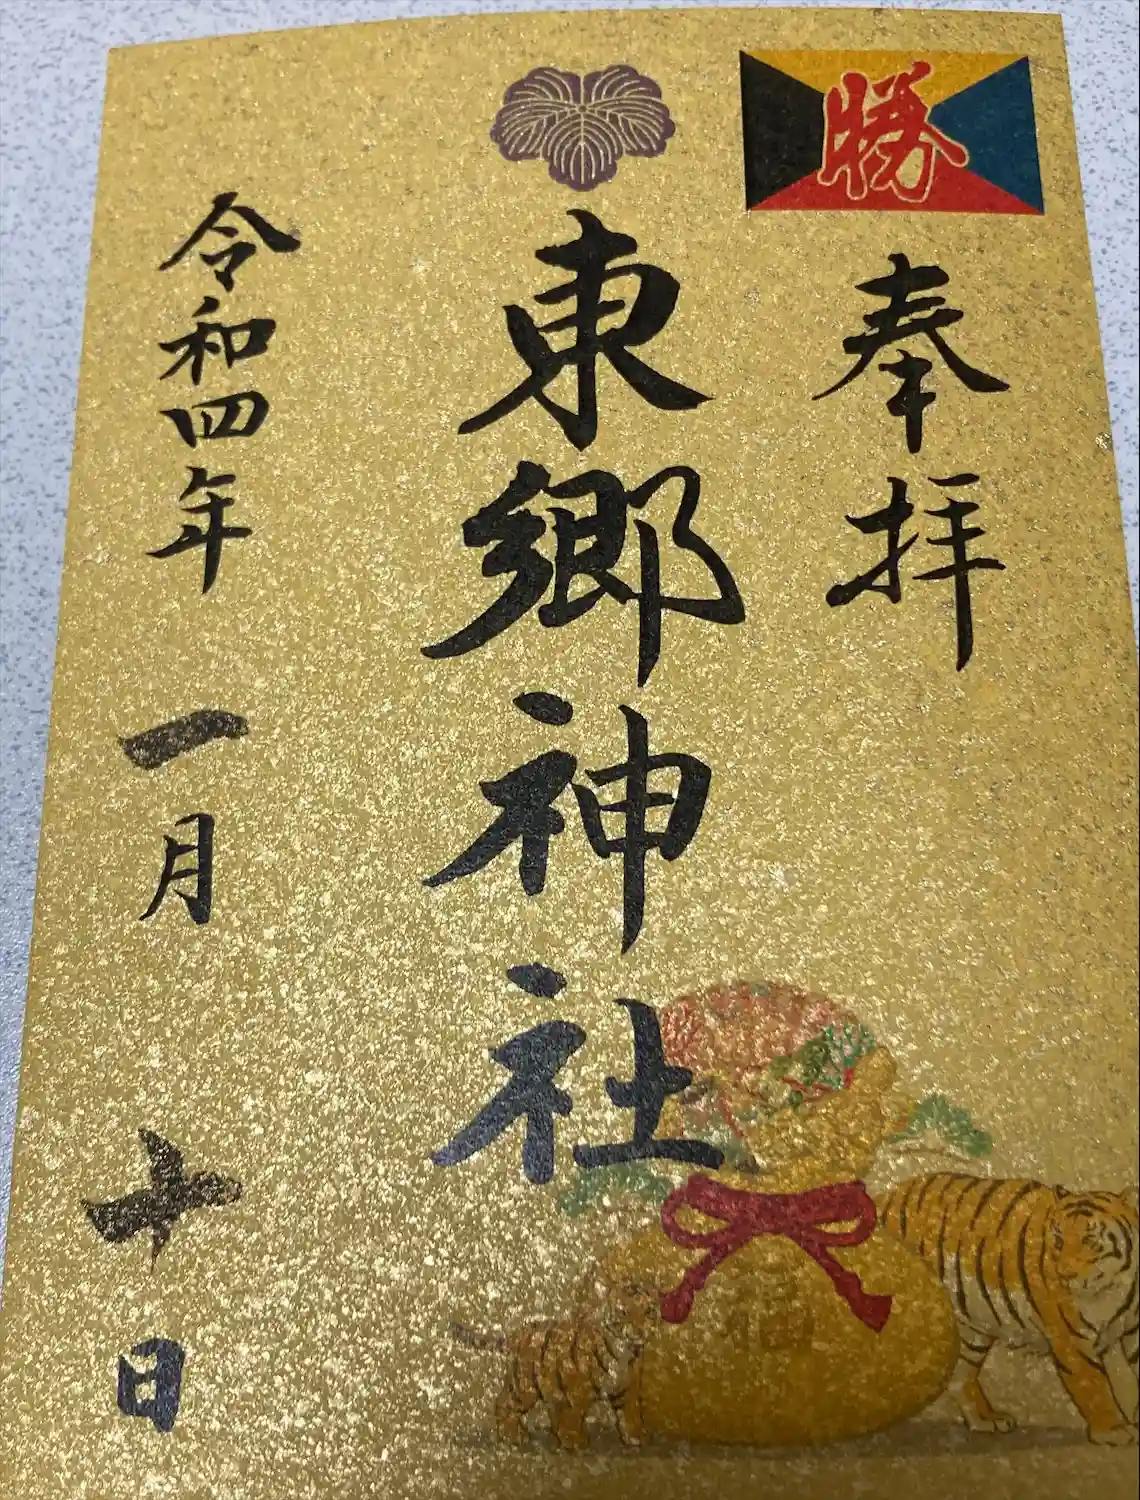 勝
奉拝
東郷神社
令和四年一月十日
福